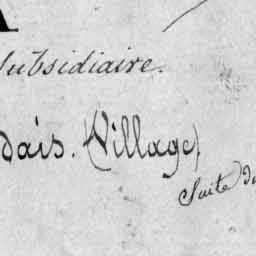 Subsidiaire.
dais. (Village)
Suite du